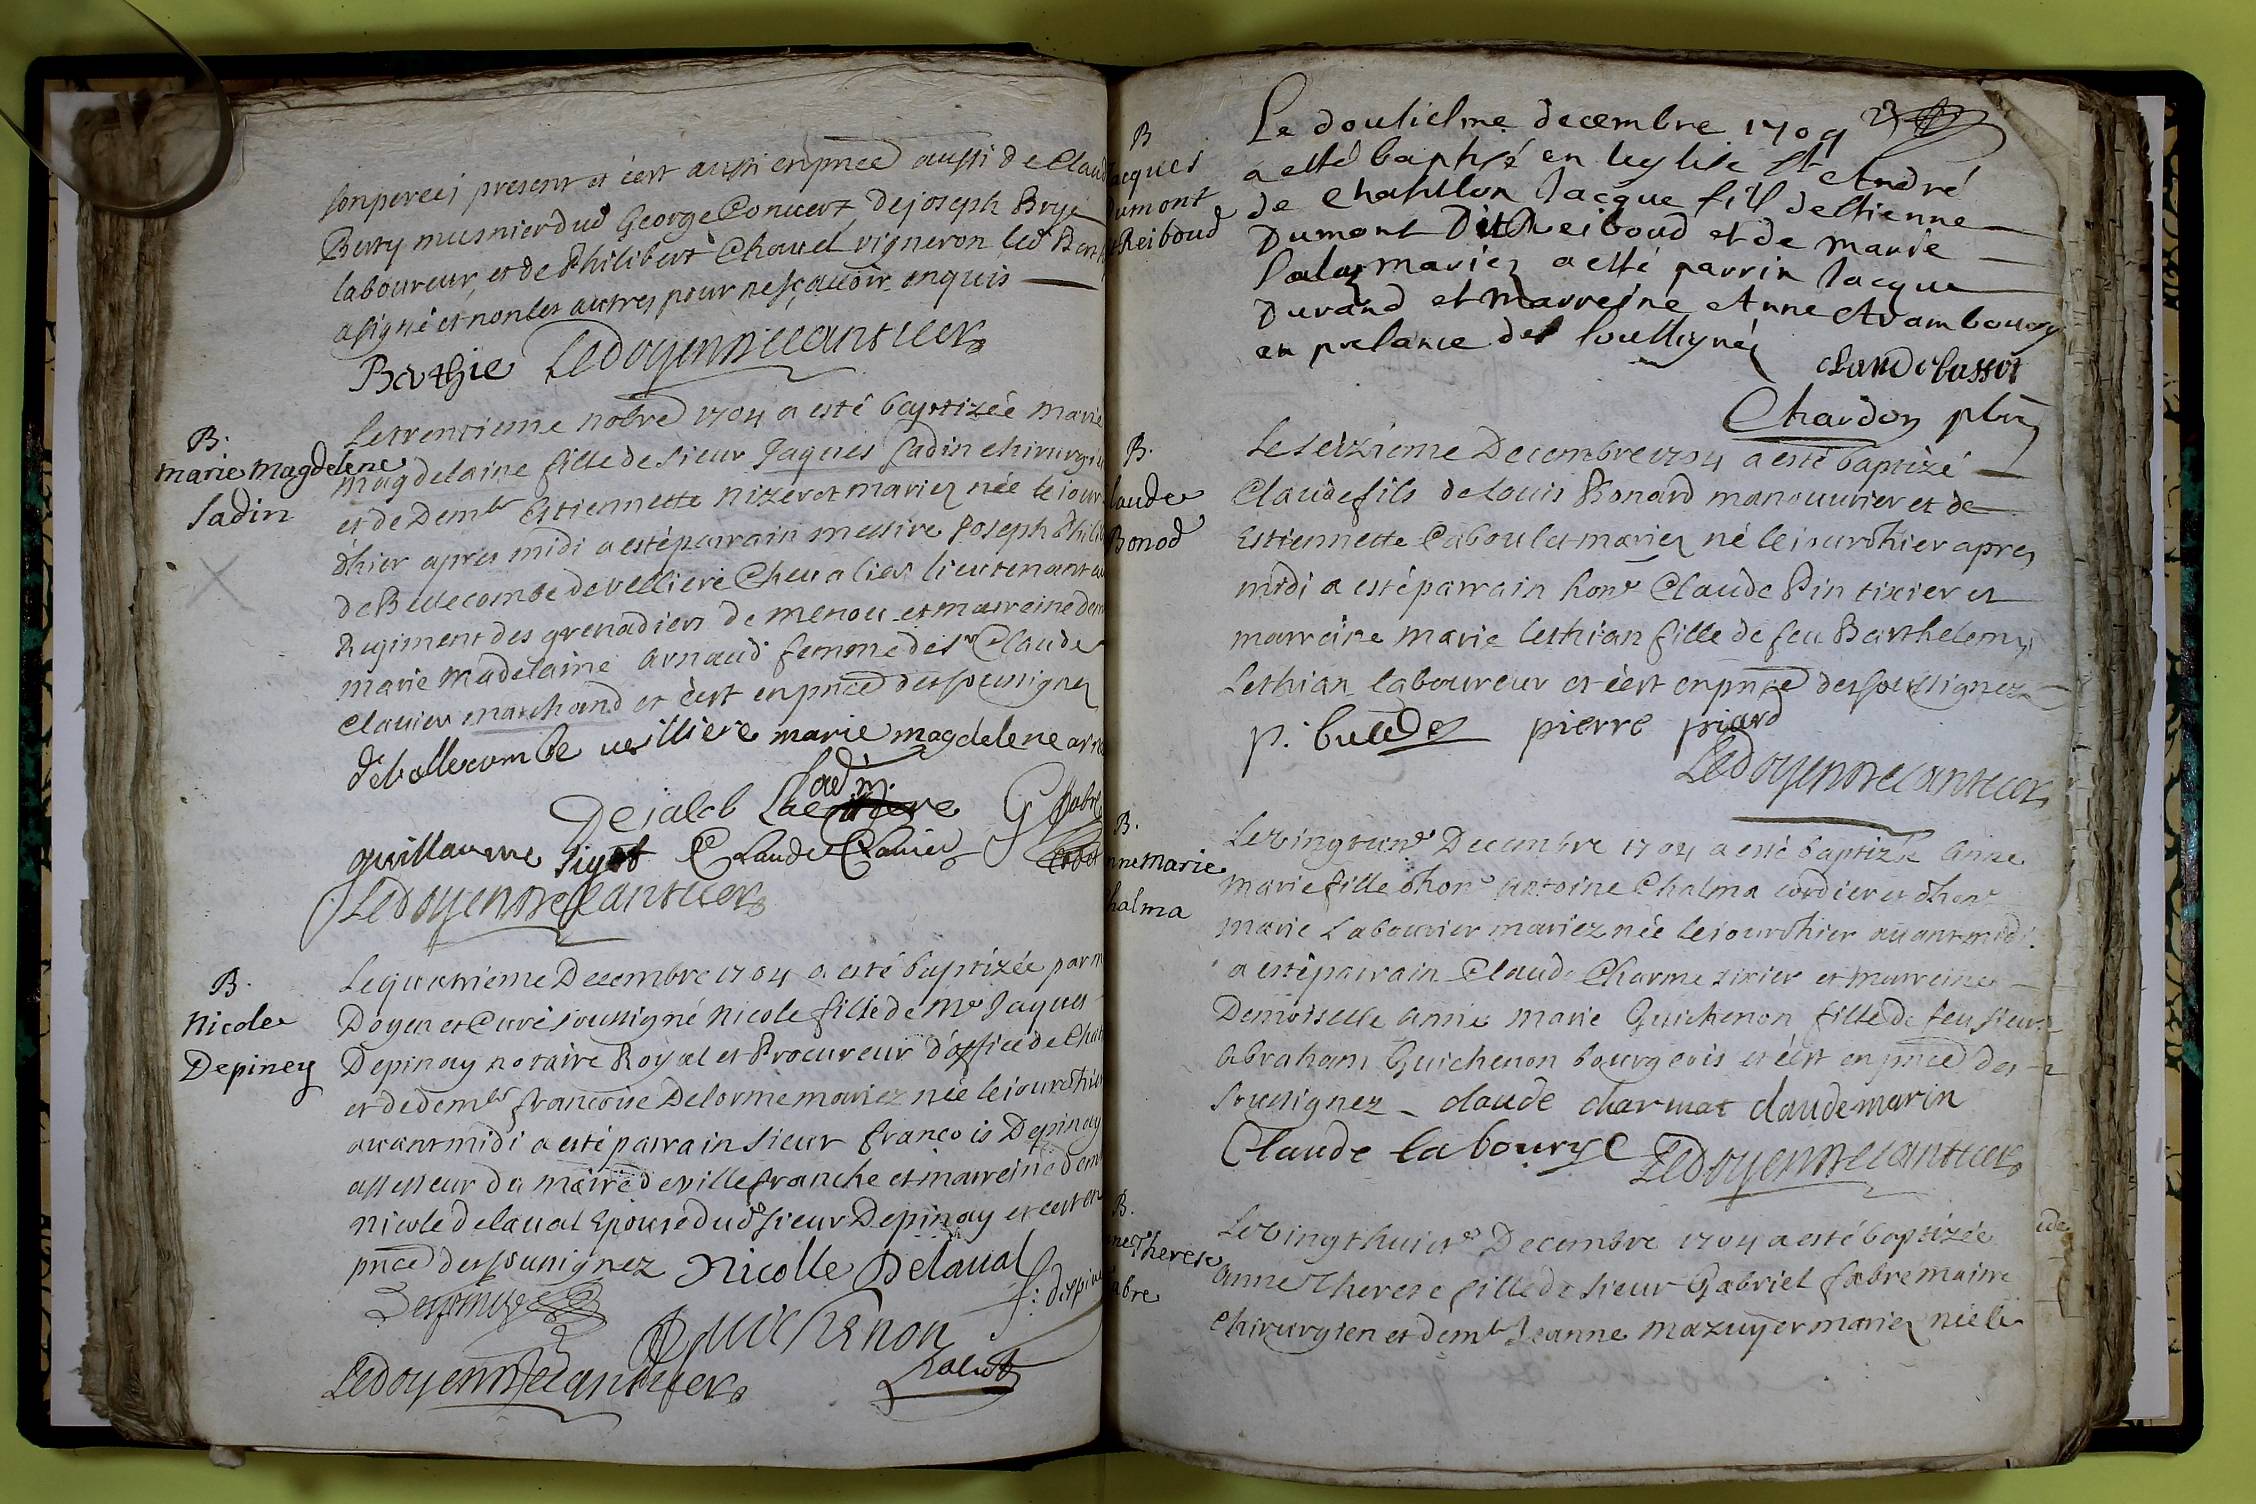 son pere cy present et c'est aussi en pnce aussi de Claud
Berry musnier dud George Convert, de joseph Brye
laboureur, et de Philibert Chavel vigneron led Berth
a signé et non les autres pour ne sçavoir enquis
Berthie Ledoyen De Cantuer
B.
marie Magdelene
Sadin
Le trentieme nobre 1704 a esté baptizée Marie
magdelaine fille de sieur Jaques Sadin chirurgie
et de Demlle Estiennette Nizeret mariez née le jour
d'hier apres midi a esté parrain messire Joseph Phili
de Bellecombe de velliere Chevalier lieutenant au
Regiment des grenadiers de menou et marreine dem
marie Madelaine Arnaud femme de sr Claude
Clavier marchand et c'est en pnce des soussignez
de bellecombe veilliere marie magdelene arn
Sadin
Dejaleb G fabre
guillaume Claude Clavier
Ledoyen De Cantuer
B.
Nicole
Depiney
Le quatrieme Decembre 1704 a esté baptizée par m
Doyen et Curé soussigné Nicole fille de Me Jaques
Depinay notaire Royal et Procureur d'office de Chat
et de demlle francoise Delorme mariez née le jour d'hier
avant midi a esté parrain sieur francois Depinay
assesseur du maire de villefranche et marreine dem
Nicole Delaval Epouse dud sieur Depinay et c'est en
pnce des soussignez Nicolle Delaval
f: despine
Guichenon
Ledoyen De Cantuer
B
Jacques
Dumont
Reiboud
Le douliesme decembre 1709 23
a esté baptisé en leglise st André
de Chatillon Jacque fils destienne
Dumont Dit Reiboud et de marie
Salaz mariez a esté parrin Jacque
Durand et Marreine Anne Arambourg
en presance des soussignéz
Claude bussot
Chardon ptre
B.
laude
Bonod
Le seizieme Decembre 1704 a esté baptizé
Claude fils de Louis Bonard manouvrier et de
Estiennette Caboulet mariez né le jour d'hier apres
midi a esté parrain honr Claude Pin tixier et
marreine marie Lethian fille de feu Barthelemy
Lethian laboureur et c'est en pnce des soussignez
p. buedes pierre piard
Ledoyen De Cantuer
B.
nne Marie
halma
Le vingt une Decembre 1704 a esté baptizée Anne
Marie fille d'honr Antoine Chalma cordier et d'honr
Marie Labourier mariez née le jour d'hier avant midi
a esté parrain Claude Charme tixier et Marreine
Demoiselle Anne Marie Guichenon fille de feu sieur
Abraham Guichenon bourgeois et c'est en pnce des
soussignez claude charmat claude marin
Claude labourye Ledoyen De Cantuer
B.
nne Therese
abre
Le vingt huicte Decembre 1704 a esté baptizée
Anne Therese fille de sieur Gabriel fabre maitre
Chirurgien et demlle Jeanne Mazuyer mariez née le